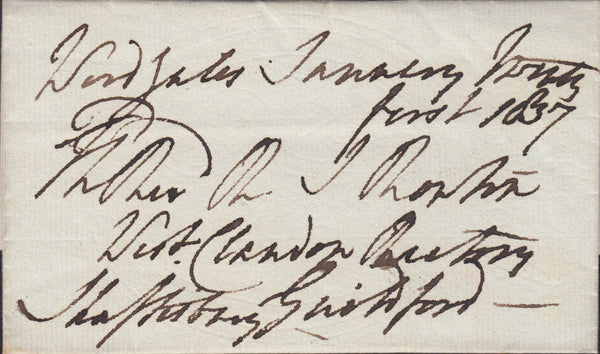 Woodgates January twenty
first 1837
The Revd Dr Thornton
West Clandon Rectory
Shaftesbury Guildford